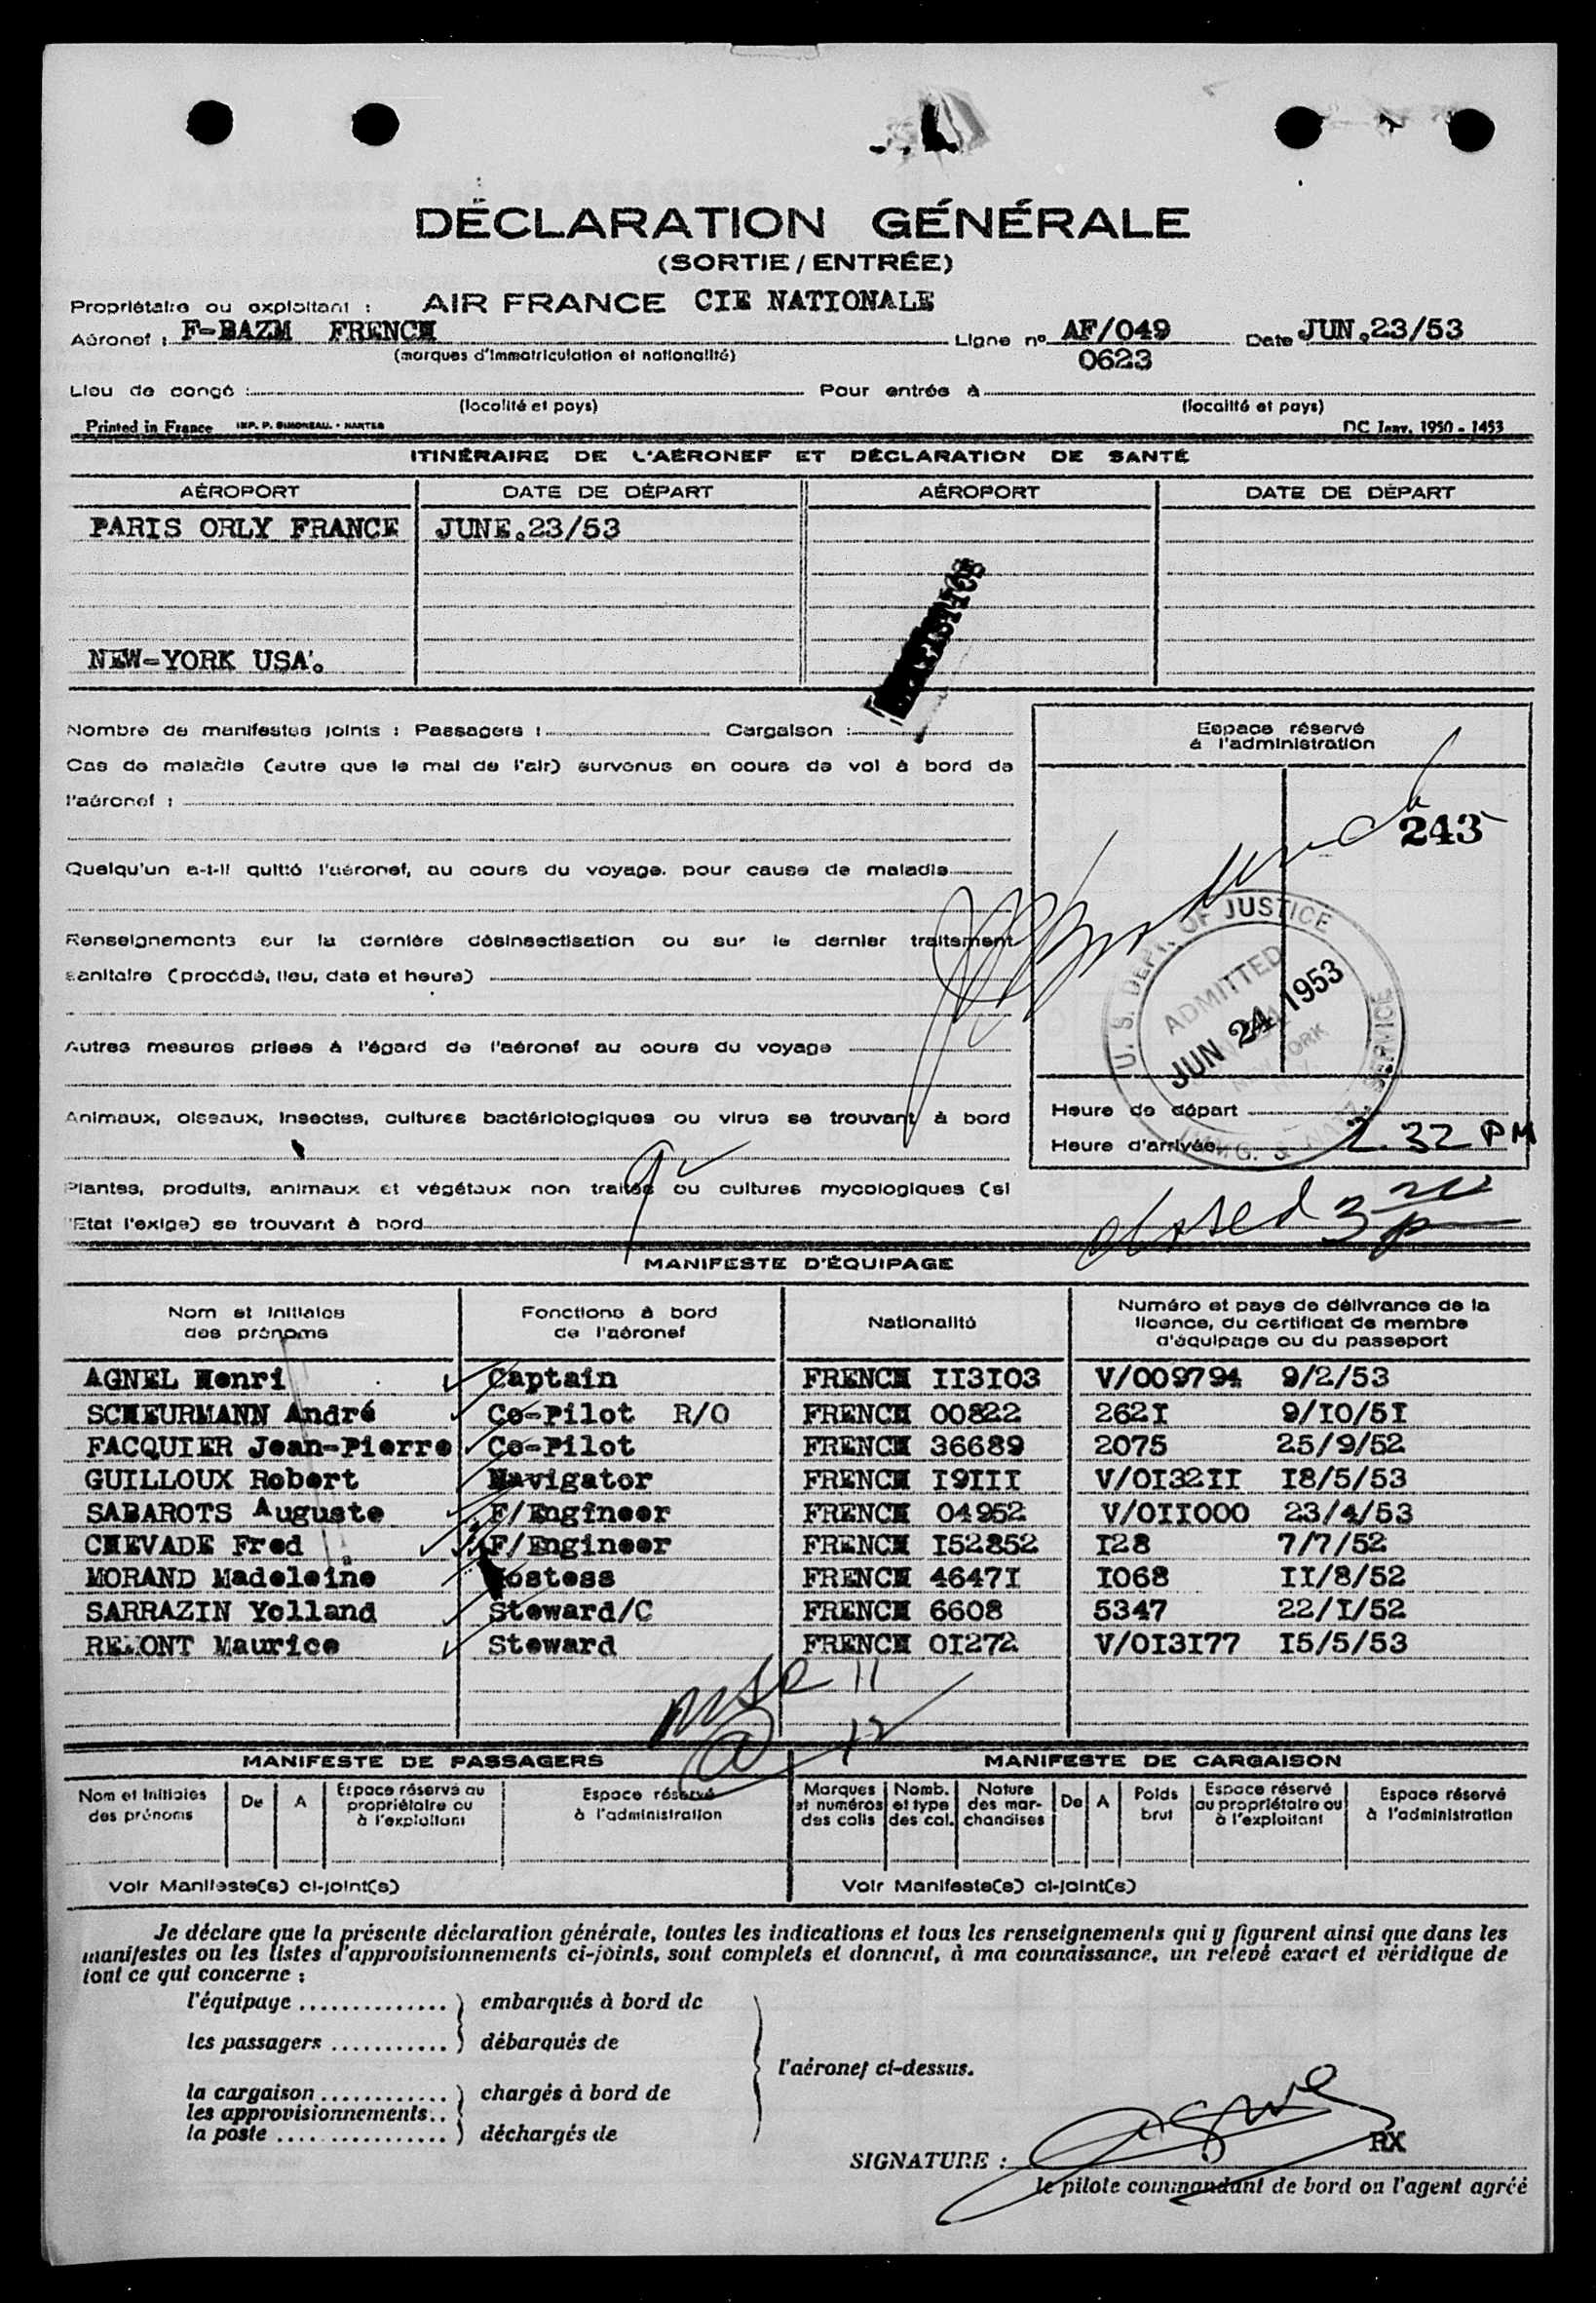 DÉCLARATION GÉNÉRALE
(SORTIE / ENTRÉE)
Propriétaire ou exploitant : AIR FRANCE CIE NATIONALE
Aéronef : F-BAZM FRENCH Ligne nº AF/049 Date JUN.23/53
(marques d'immatriculation et nationalité) 0623
Lieu de congé : Pour entrée à
(localité et pays) (localité et pays)
Printed in France IMP. P. SIMONEAU. - NANTES DC Janv. 1950 - 1453
ITINÉRAIRE DE L'AÉRONEF ET DÉCLARATION DE SANTÉ
AÉROPORT DATE DE DÉPART AÉROPORT DATE DE DÉPART
PARIS ORLY FRANCE JUNE.23/53
NEW-YORK USA.
Nombre de manifestes joints : Passagers : Cargaison :
Cas de maladie (autre que le mal de l'air) survenus en cours de vol à bord de
l'aéronef :
Quelqu'un a-t-il quitté l'aéronef, au cours du voyage, pour cause de maladie
Renseignements sur la dernière désinsectisation ou sur le dernier traitement
sanitaire (procédé, lieu, date et heure)
Autres mesures prises à l'égard de l'aéronef au cours du voyage
Animaux, oiseaux, insectes, cultures bactériologiques ou virus se trouvant à bord
Plantes, produits, animaux et végétaux non traités ou cultures mycologiques (si
l'Etat l'exige) se trouvant à bord
Espace réservé
à l'administration
243
U. S. DEPT. OF JUSTICE
ADMITTED
JUN 24 1953
NEW YORK
IMMIG. & NATZ. SERVICE
Heure de départ
Heure d'arrivée 2 32 PM
closed 3
MANIFESTE D'ÉQUIPAGE
Nom et initiales des prénoms Fonctions à bord de l'aéronef Nationalité Numéro et pays de délivrance de la licence, du certificat de membre d'équipage ou du passeport
AGNEL Henri Captain FRENCH II3I03 V/009794 9/2/53
SCHEURMANN André Co-Pilot R/O FRENCH 00822 262I 9/I0/5I
FACQUIER Jean-Pierre Co-Pilot FRENCH 36689 2075 25/9/52
GUILLOUX Robert Navigator FRENCH I9III V/0I32II I8/5/53
SABAROTS Auguste F/Engineer FRENCH 04952 V/0II000 23/4/53
CHEVADE Fred F/Engineer FRENCH I52852 I28 7/7/52
MORAND Madeleine Hostess FRENCH 4647I I068 II/8/52
SARRAZIN Yolland Steward/C FRENCH 6608 5347 22/I/52
REMONT Maurice Steward FRENCH 0I272 V/0I3I77 I5/5/53
11
12
MANIFESTE DE PASSAGERS MANIFESTE DE CARGAISON
Nom et initiales des prénoms De A Espace réservé au propriétaire ou à l'exploitant Espace réservé à l'administration Marques et numéros des colis Nomb. et type des col. Nature des mar- chandises De A Poids brut Espace réservé au propriétaire ou à l'exploitant Espace réservé à l'administration
Voir Manifeste(s) ci-joint(s) Voir Manifeste(s) ci-joint(s)
Je déclare que la présente déclaration générale, toutes les indications et tous les renseignements qui y figurent ainsi que dans les
manifestes ou les listes d'approvisionnements ci-joints, sont complets et donnent, à ma connaissance, un relevé exact et véridique de
tout ce qui concerne :
l'équipage .............. ) embarqués à bord de
les passagers ........... ) débarqués de
l'aéronef ci-dessus.
la cargaison ............ ) chargés à bord de
les approvisionnements..
la poste ................. ) déchargés de
SIGNATURE : RX
le pilote commandant de bord ou l'agent agréé